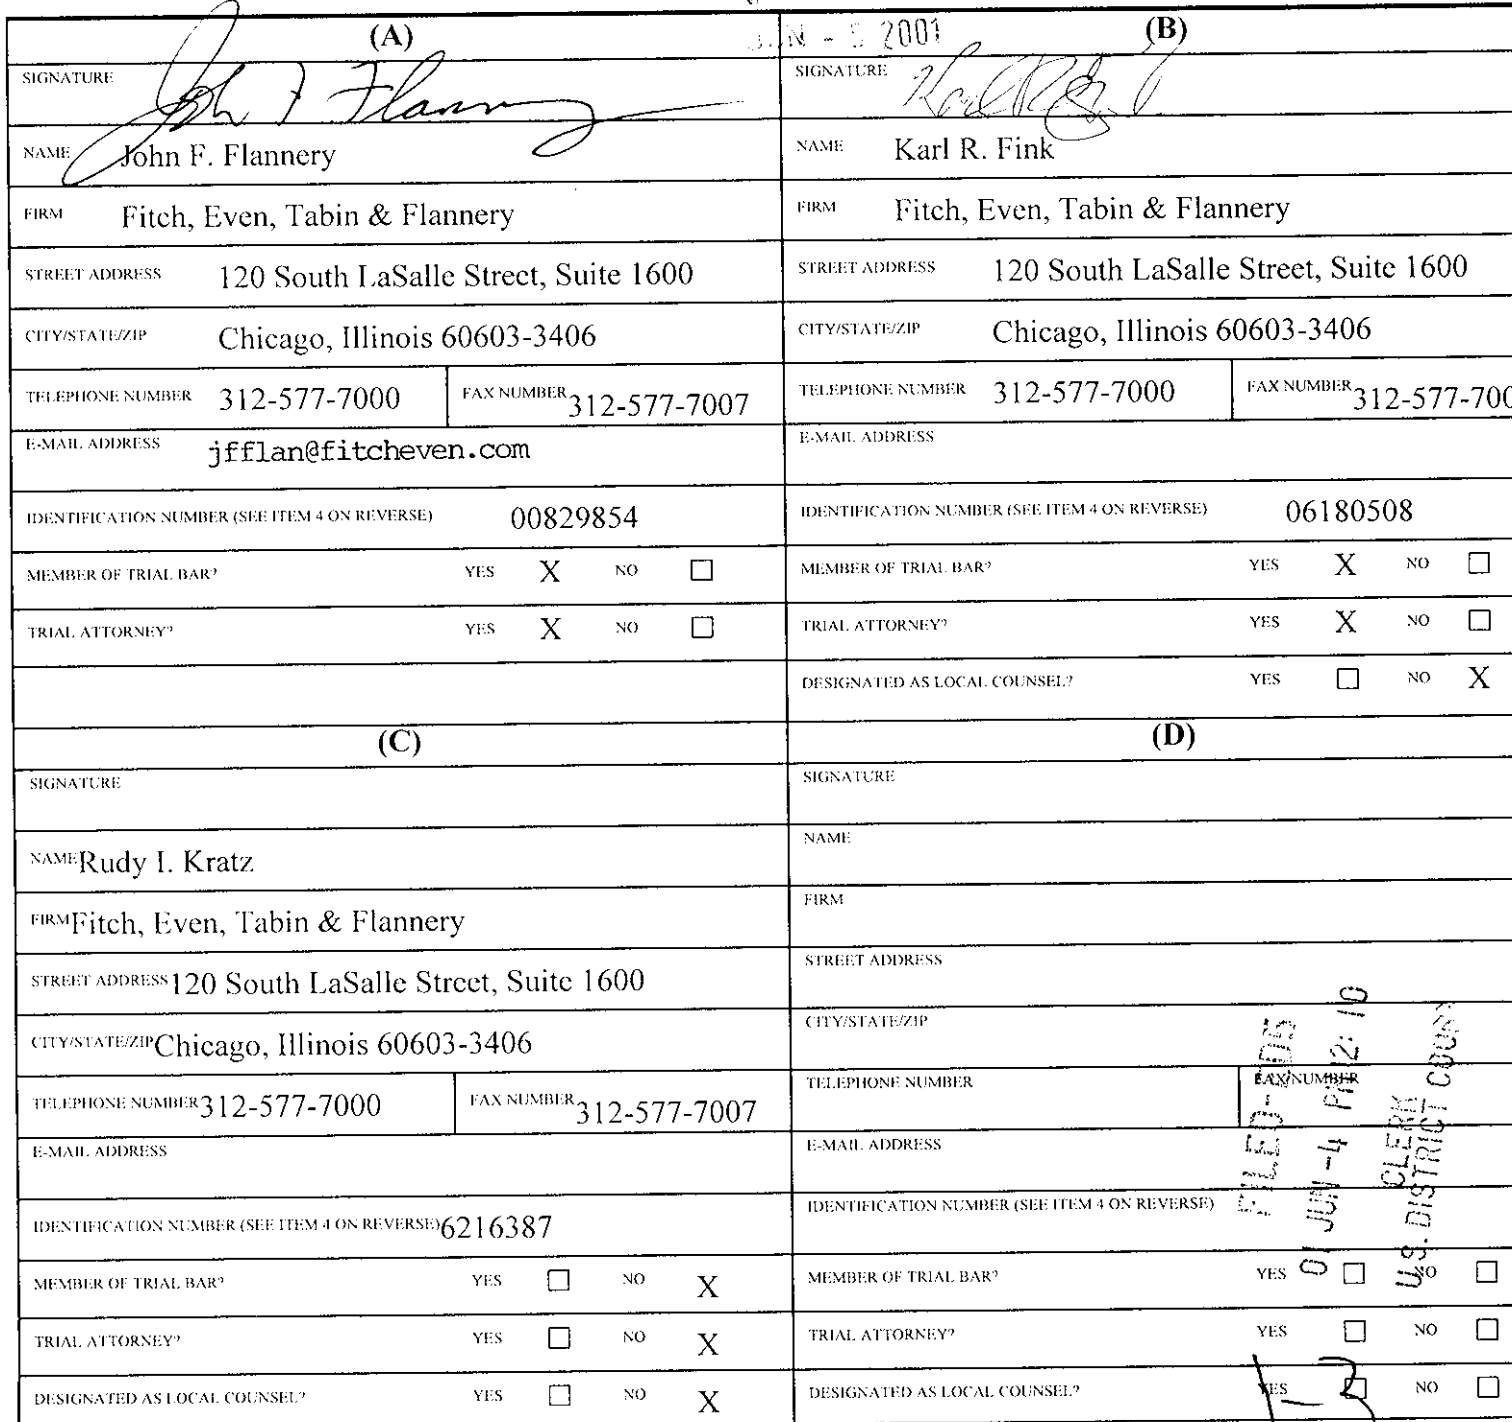 (A)
SIGNATURE John F Flannery
NAME John F. Flannery
FIRM Fitch, Even, Tabin & Flannery
STREET ADDRESS 120 South LaSalle Street, Suite 1600
CITY/STATE/ZIP Chicago, Illinois 60603-3406
TELEPHONE NUMBER 312-577-7000 FAX NUMBER 312-577-7007
E-MAIL ADDRESS jfflan@fitcheven.com
IDENTIFICATION NUMBER (SEE ITEM 4 ON REVERSE) 00829854
MEMBER OF TRIAL BAR? YES X NO ☐
TRIAL ATTORNEY? YES X NO ☐
JUN - 5 2001
(B)
SIGNATURE Karl R Fink
NAME Karl R. Fink
FIRM Fitch, Even, Tabin & Flannery
STREET ADDRESS 120 South LaSalle Street, Suite 1600
CITY/STATE/ZIP Chicago, Illinois 60603-3406
TELEPHONE NUMBER 312-577-7000 FAX NUMBER 312-577-700
E-MAIL ADDRESS
IDENTIFICATION NUMBER (SEE ITEM 4 ON REVERSE) 06180508
MEMBER OF TRIAL BAR? YES X NO ☐
TRIAL ATTORNEY? YES X NO ☐
DESIGNATED AS LOCAL COUNSEL? YES ☐ NO X
(C)
SIGNATURE
NAME Rudy I. Kratz
FIRM Fitch, Even, Tabin & Flannery
STREET ADDRESS 120 South LaSalle Street, Suite 1600
CITY/STATE/ZIP Chicago, Illinois 60603-3406
TELEPHONE NUMBER 312-577-7000 FAX NUMBER 312-577-7007
E-MAIL ADDRESS
IDENTIFICATION NUMBER (SEE ITEM 4 ON REVERSE) 6216387
MEMBER OF TRIAL BAR? YES ☐ NO X
TRIAL ATTORNEY? YES ☐ NO X
DESIGNATED AS LOCAL COUNSEL? YES ☐ NO X
(D)
SIGNATURE
NAME
FIRM
STREET ADDRESS
CITY/STATE/ZIP
TELEPHONE NUMBER FAX NUMBER
E-MAIL ADDRESS
IDENTIFICATION NUMBER (SEE ITEM 4 ON REVERSE)
MEMBER OF TRIAL BAR? YES ☐ NO ☐
TRIAL ATTORNEY? YES ☐ NO ☐
DESIGNATED AS LOCAL COUNSEL? YES ☐ NO ☐
01 JUN -4 PM 12: 10
CLERK
U.S. DISTRICT COURT
1-3